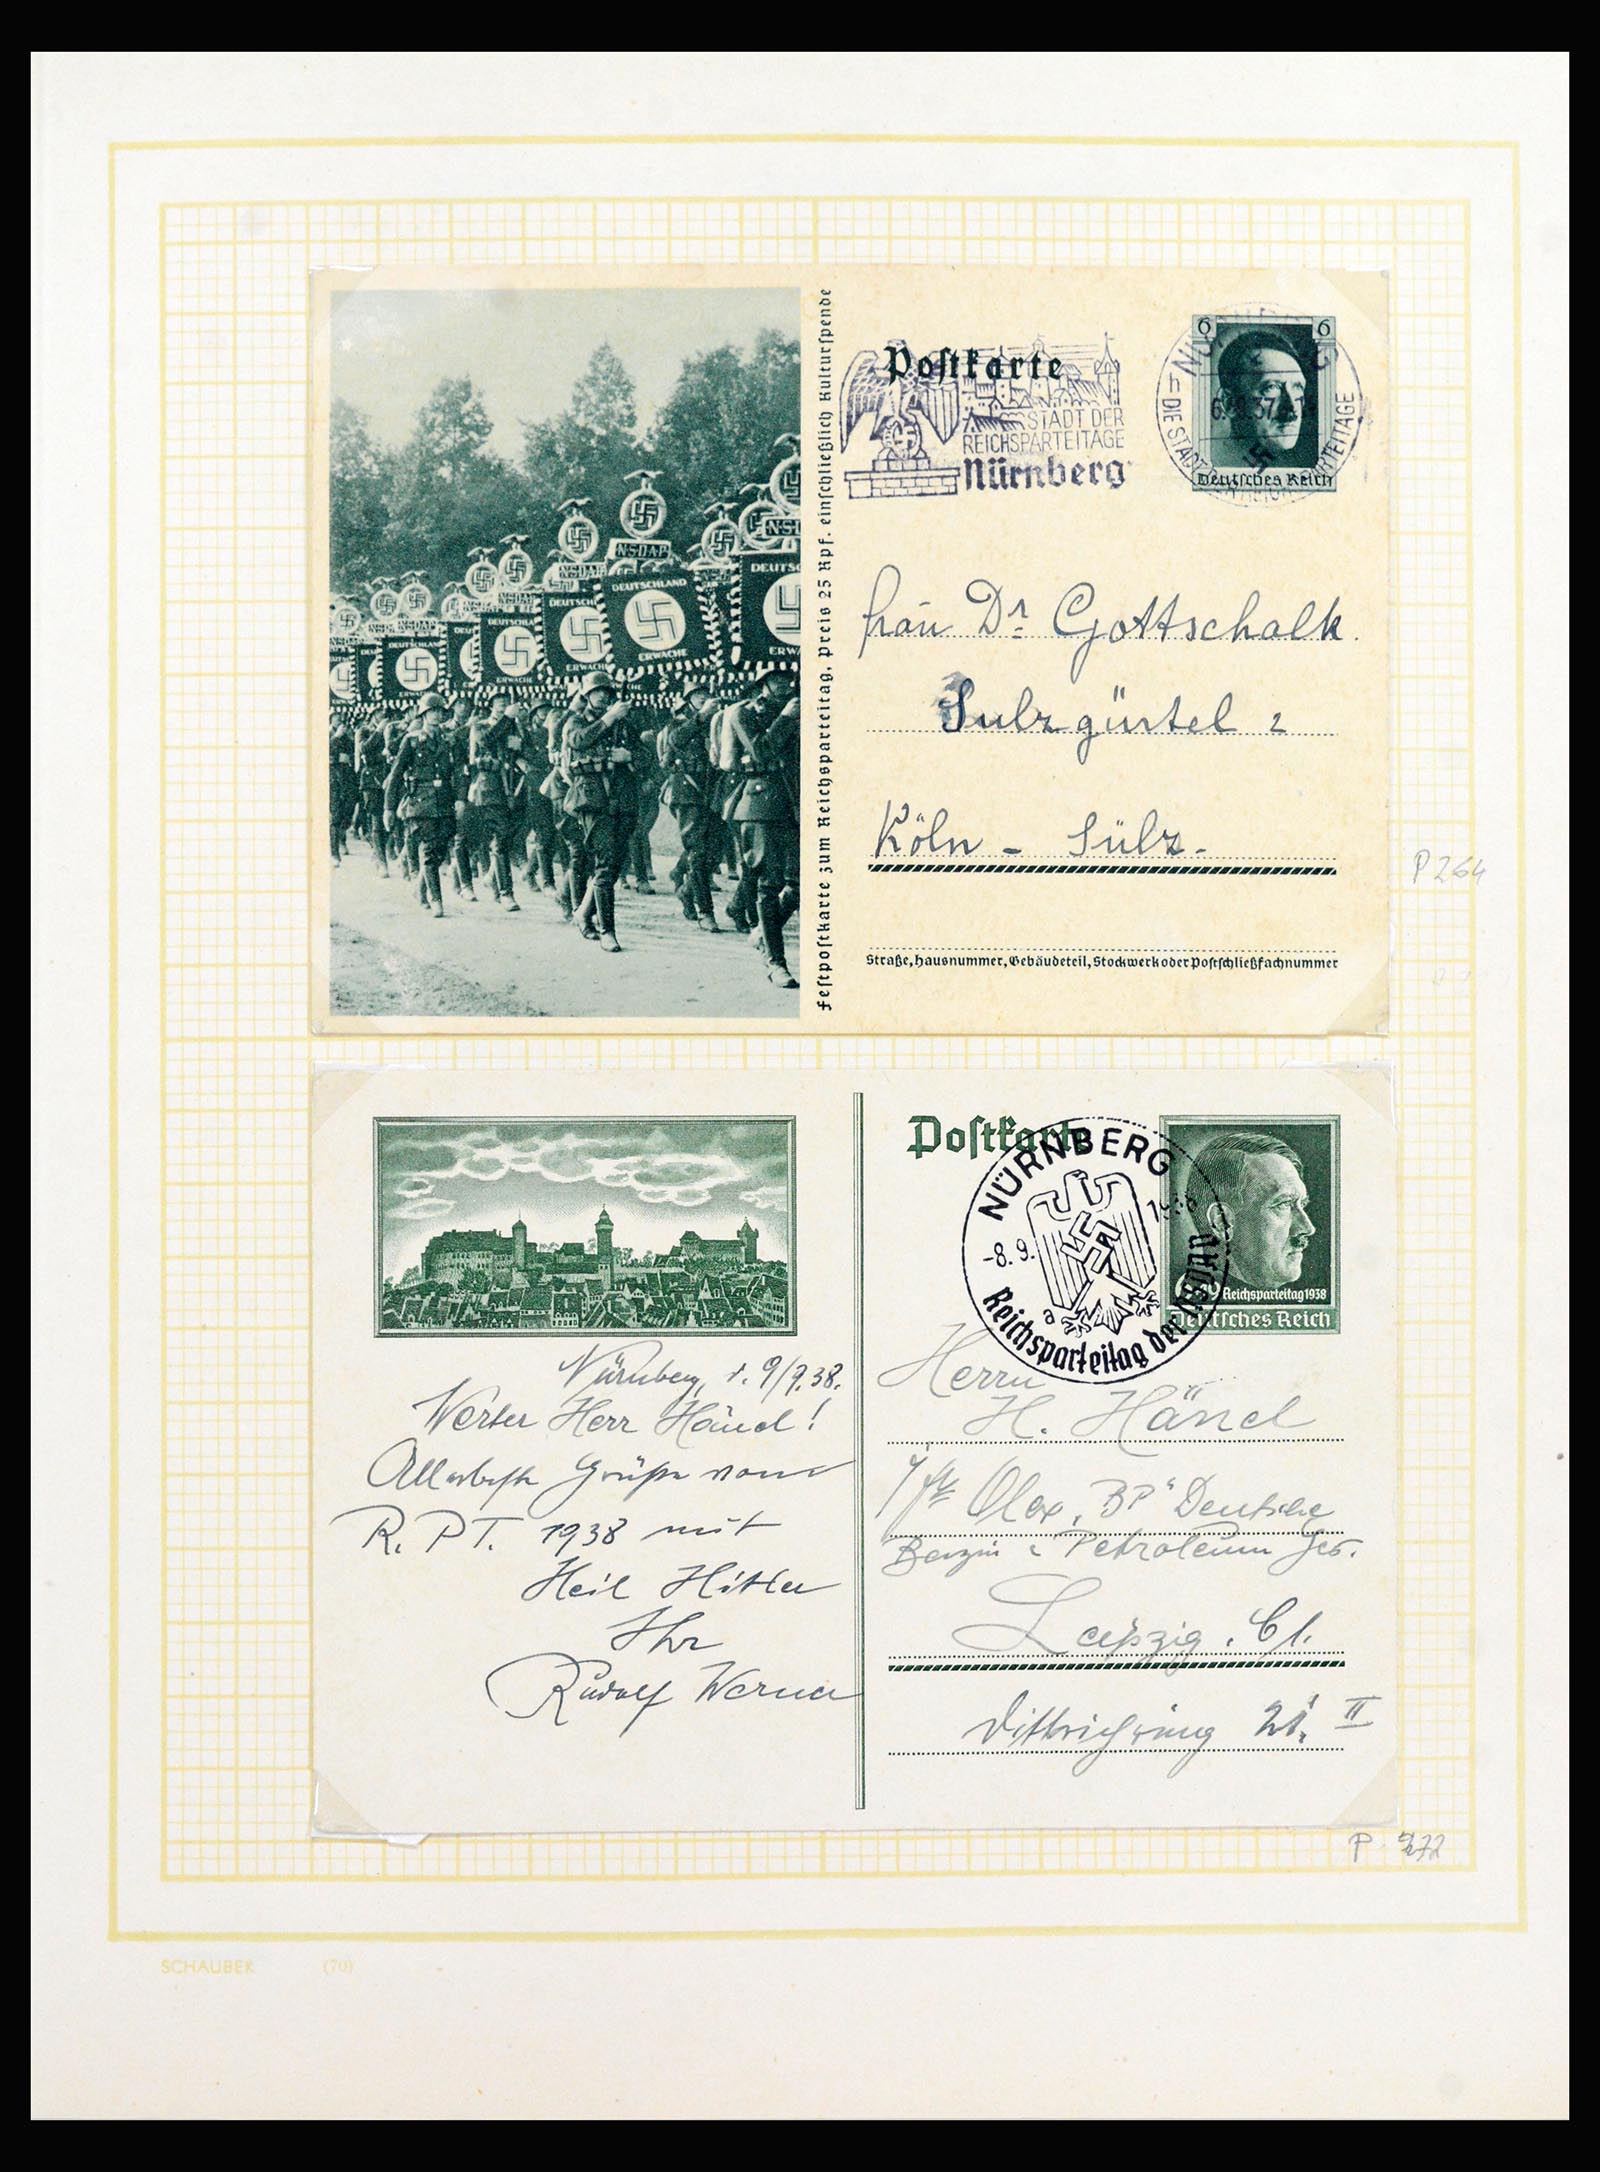 Festpostkarte zum Reichsparteitag, Preis 25 Rpf. einschließlich Kulturspende
NSDAP
DEUTSCHLAND
ERWACHE
Postkarte
STADT DER
REICHSPARTEITAGE
Nürnberg
6 6
Deutsches Reich
Frau Dr. Gottschalk
Sulzgürtel 2
Köln - Sülz.
Straße, Hausnummer, Gebäudeteil, Stockwerk oder Postschließfachnummer
P 264
Postkarte
NÜRNBERG
-8. 9.
a
Reichsparteitag der NSDAP
Reichsparteitag 1938
Deutsches Reich
Nürnberg, d. 9/9.38.
Werter Herr Händl!
Allerbeste Grüße vom
R. P T. 1938 mit
Heil Hitler
Ihr
Rudolf Werner
Herrn
H. Händl
Olex "BP" Deutsche
Benzin u Petroleum Ges.
Leipzig. C1.
Dittrichring 21. II
P. 272
SCHAUBEK (70)